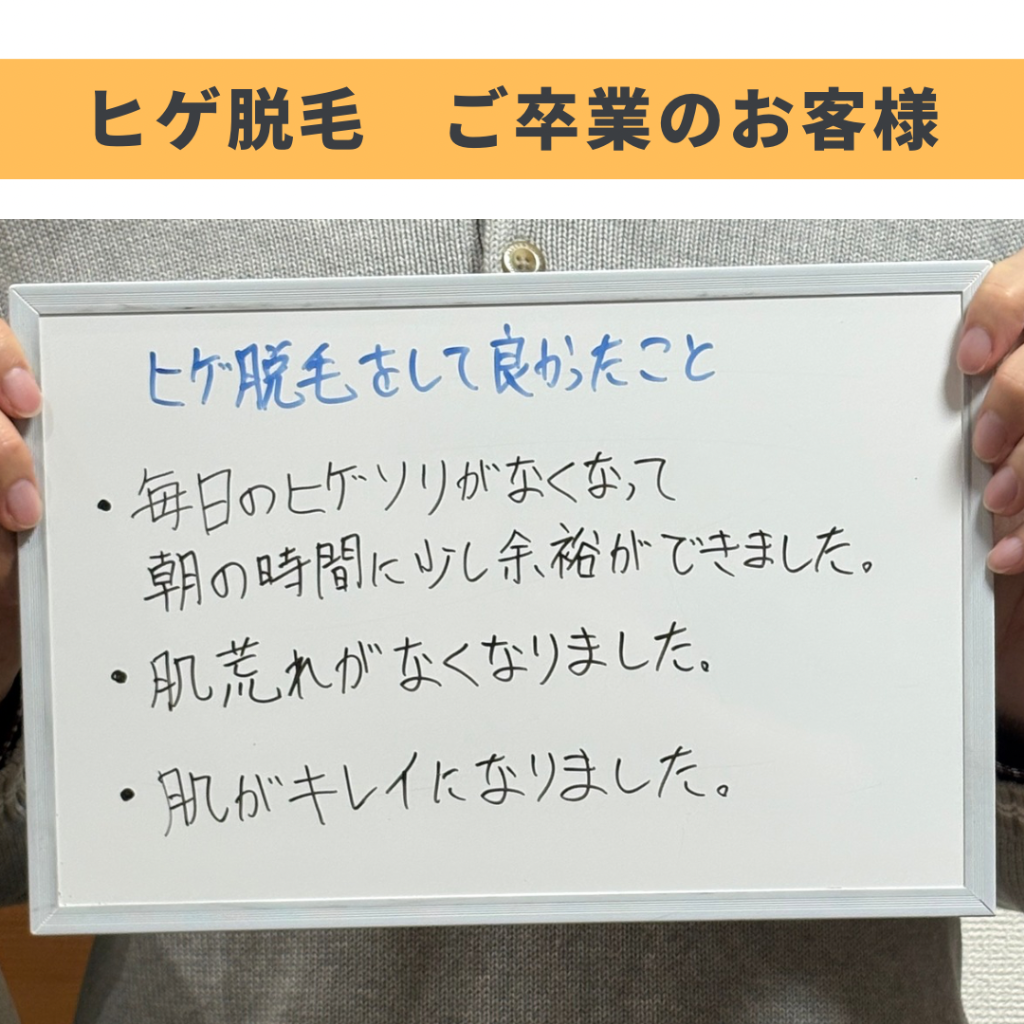 ヒゲ脱毛　ご卒業のお客様
ヒゲ脱毛をして良かったこと
・毎日のヒゲソリがなくなって
朝の時間に少し余裕ができました。
・肌荒れがなくなりました。
・肌がキレイになりました。